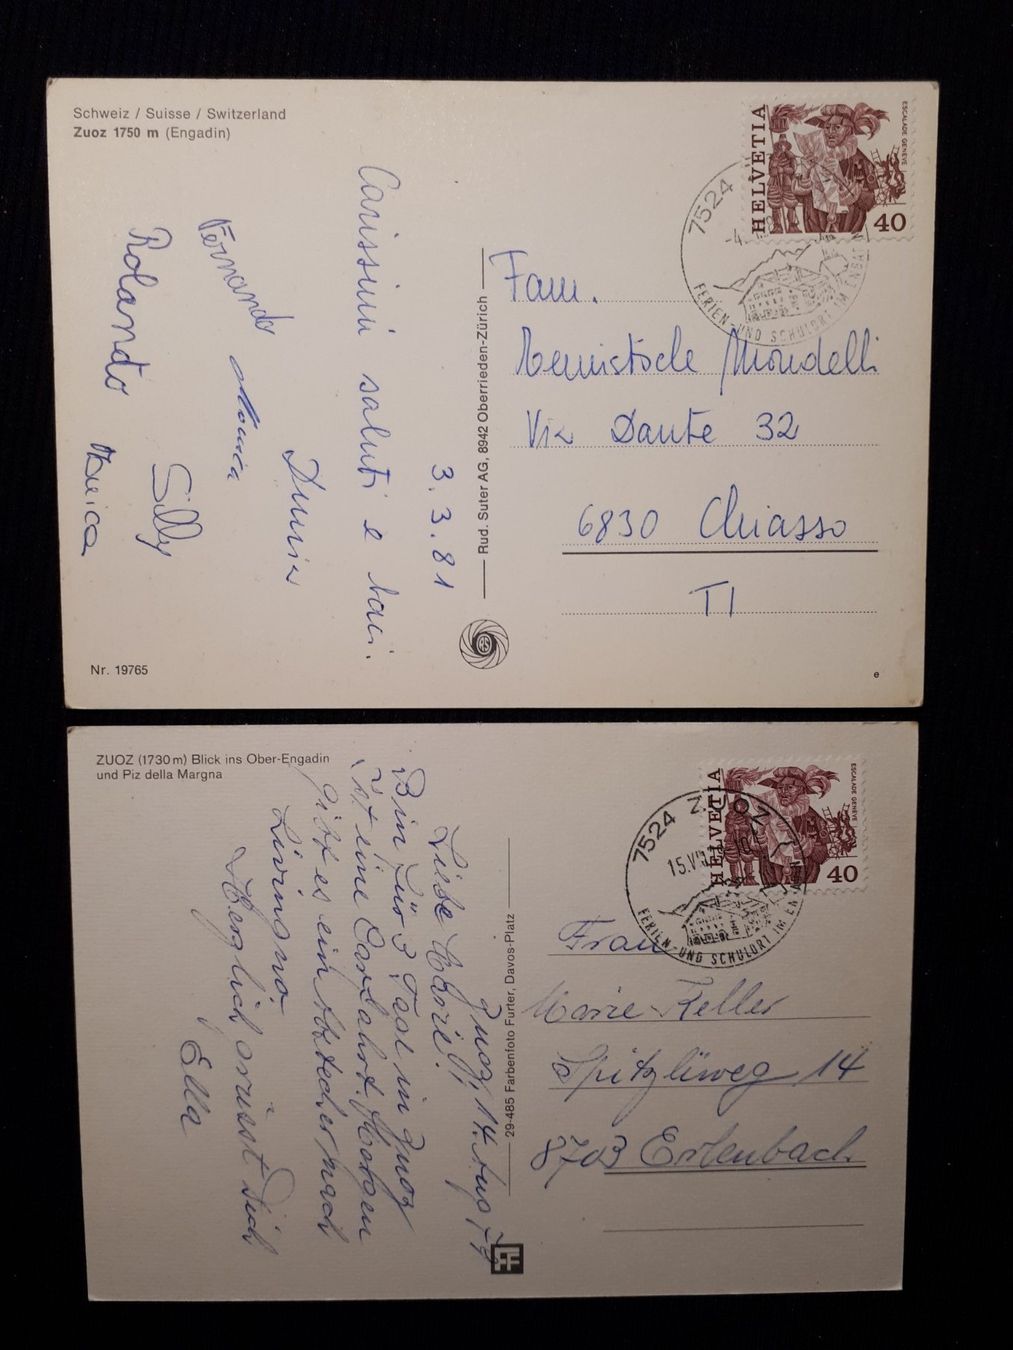 Schweiz / Suisse / Switzerland
Zuoz 1750 m (Engadin)
3.3.81
Carissimi saluti e baci.
Fernando
Dunia
Rolando
Silly
Monica
Nr. 19765
Rud. Suter AG, 8942 Oberrieden-Zürich
RS
HELVETIA
ESCALADE GENÈVE
40
7524
FERIEN- UND SCHULORT IM ENGAD
Fam.
Temistocle Mondelli
Via Dante 32
6830 Chiasso
TI
e
ZUOZ (1730 m) Blick ins Ober-Engadin
und Piz della Margna
Zuoz, 14. Aug 79
Liebe Marie!
Bin für 3 Tage in Zuoz
ist eine Carfahrt. Morgen
gibt es ein Abstecher nach
Livingno.
Herzlich grüsst Dich
Ella
29-485 Farbenfoto Furter, Davos-Platz
FF
HELVETIA
ESCALADE GENÈVE
40
7524 ZUOZ
15.VI
FERIEN- UND SCHULORT IM ENGADIN
Frau
Marie Keller
Spitzliweg 14
8703 Erlenbach